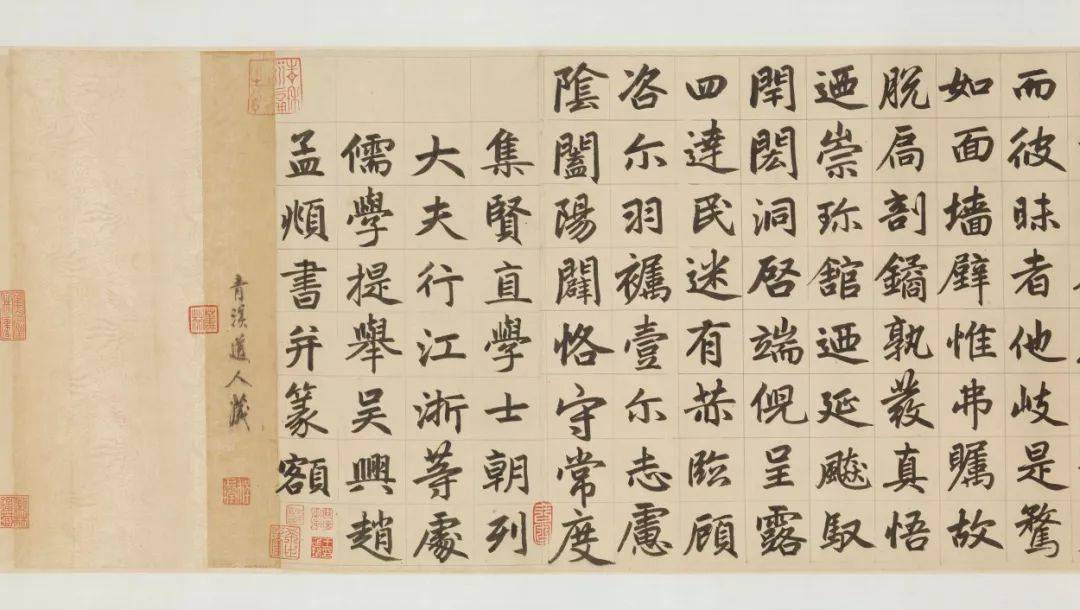 而彼昧者他岐是騖
如面墻壁惟弗矚故
脱扃剖鐍孰發真悟
迺崇珎館迺延飈馭
閈閎洞啓端倪呈露
四達民迷有赫臨顧
咨尔羽襹壹尔志慮
陰闔陽闢恪守常度
集賢直學士朝列
大夫行江浙等處
儒學提舉吳興趙
孟頫書并篆額
青溪道人藏